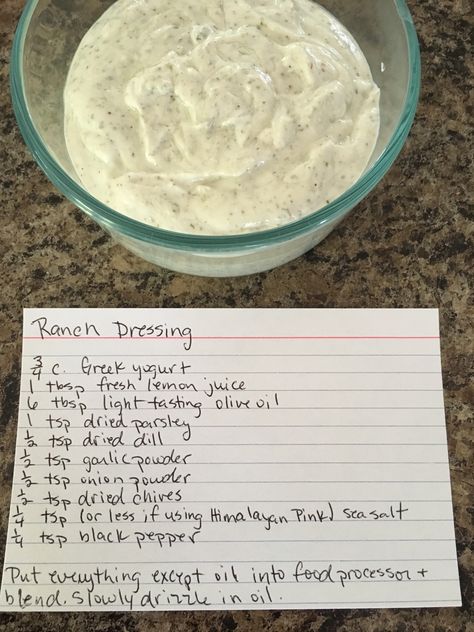 Ranch Dressing
3/4 c. Greek yogurt
1 tbsp fresh lemon juice
6 tbsp light tasting olive oil
1 tsp dried parsley
1/2 tsp dried dill
1/2 tsp garlic powder
1/2 tsp onion powder
1/2 tsp dried chives
1/4 tsp (or less if using Himalayan Pink) sea salt
1/4 tsp black pepper
Put everything except oil into food processor +
blend. Slowly drizzle in oil.